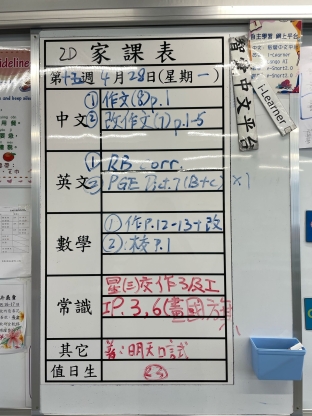 2D 家課表
第十五週 4月28日(星期一)
中文
① 作文(8)p.1
② 改作文(7)p.1-5
英文
① RB corr.
② PGE List 7 (B+C) x1
數學
① 作P.12-13+改
② 校P.1
常識
星(三)交作3及工
P.3,6(畫國
其它
善:明天口試
值日生
23
智浩中文平台
i-Learner
自主學習 網上平台